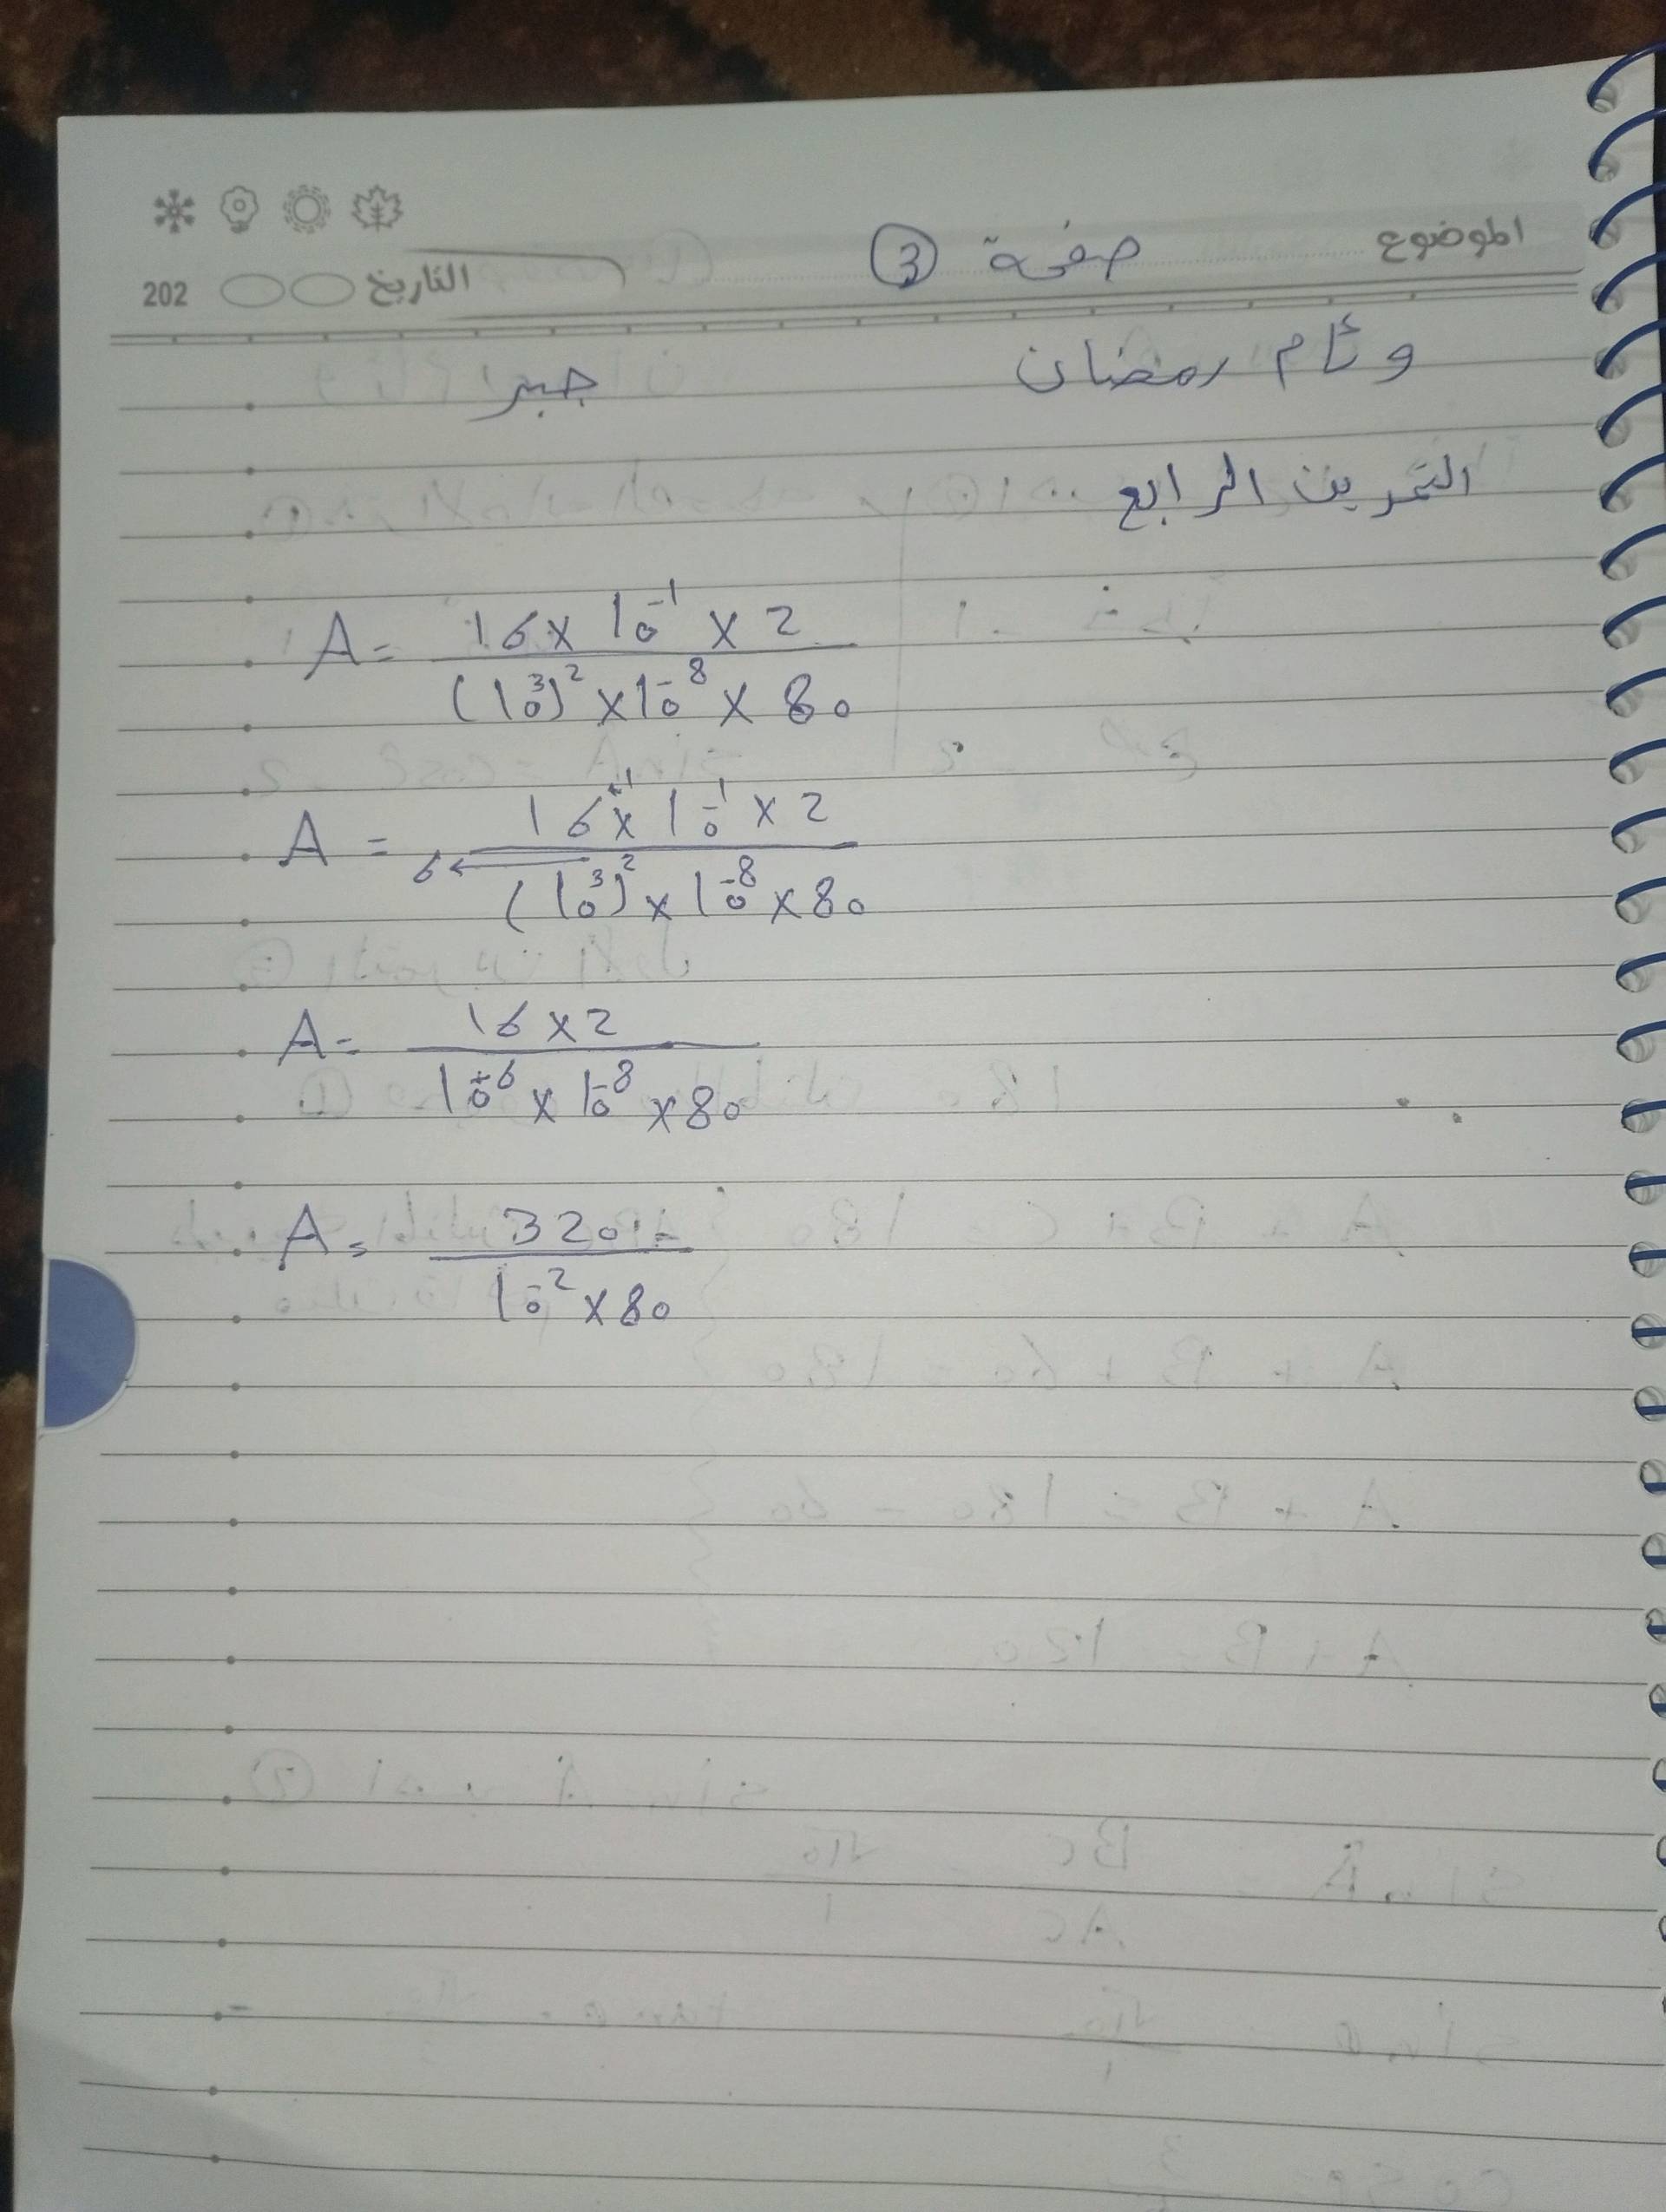 الموضوع صفحة 3
التاريخ 202
وئام رمضان جبر
التمرين الرابع
A = 16 × 10⁻¹ × 2 / (10³)² × 10⁻⁸ × 80
A = 16 × 10⁻¹ × 2 / (10³)² × 10⁻⁸ × 80
6 ←
A = 16 × 2 / 10⁺⁶ × 10⁻⁸ × 80
A = 320 / 10⁻² × 80